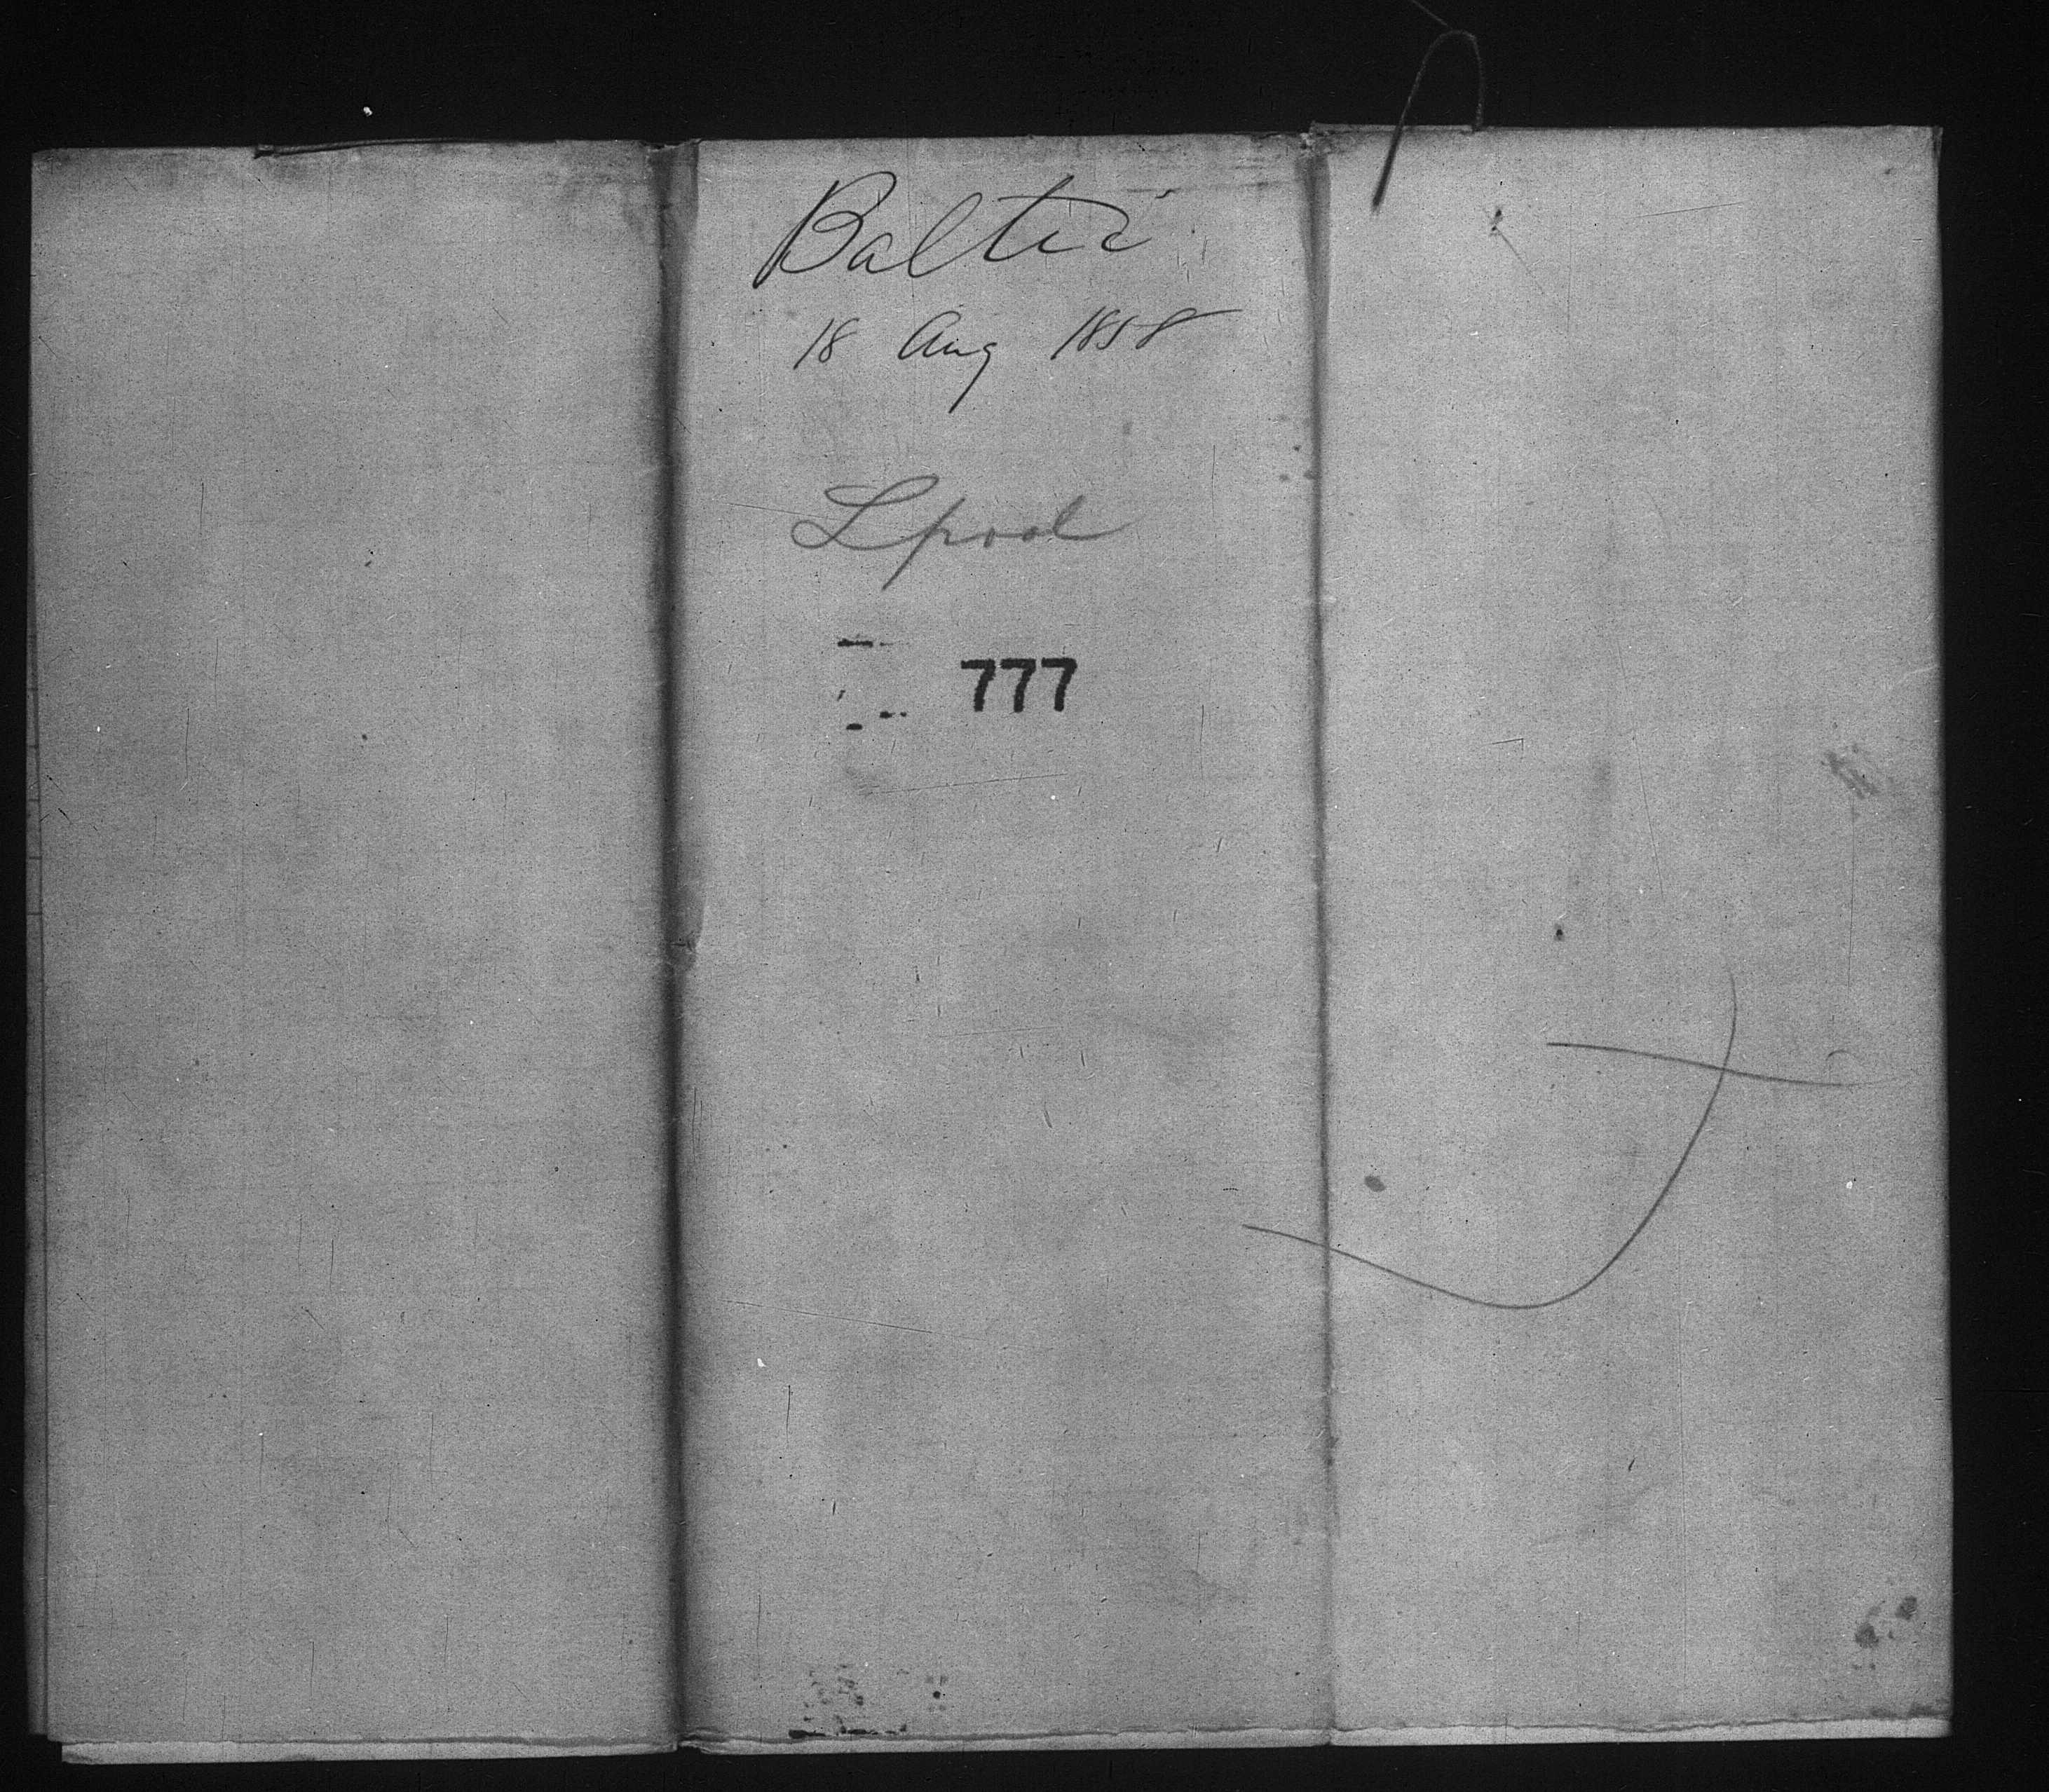 Baltic
18 Aug 1858
Lpool
777